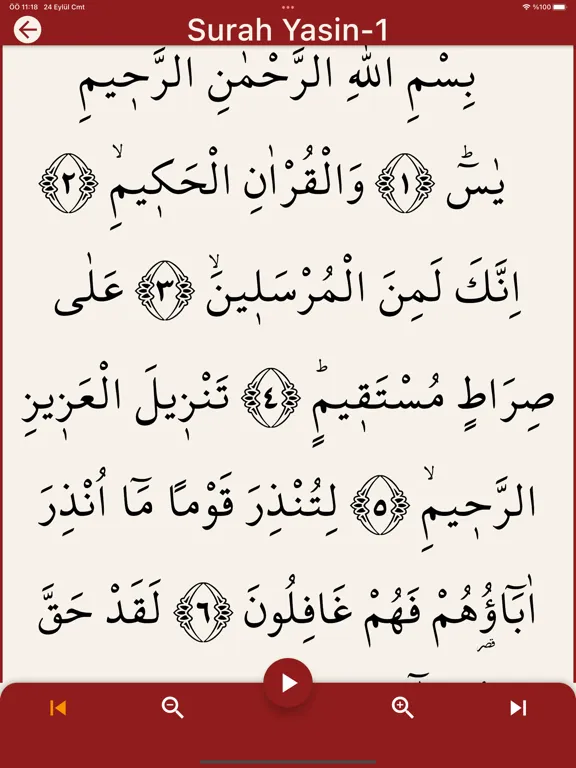 ÖÖ 11:18 24 Eylül Cmt %100
Surah Yasin-1
بِسْمِ اللهِ الرَّحْمٰنِ الرَّحٖيمِ
يٰسٓۜ ﴿١﴾ وَالْقُرْاٰنِ الْحَكٖيمِۙ ﴿٢﴾
اِنَّكَ لَمِنَ الْمُرْسَلٖينَۙ ﴿٣﴾ عَلٰى
صِرَاطٍ مُسْتَقٖيمٍۜ ﴿٤﴾ تَنْزٖيلَ الْعَزٖيزِ
الرَّحٖيمِۙ ﴿٥﴾ لِتُنْذِرَ قَوْمًا مَٓا اُنْذِرَ
اٰبَٓاؤُ۬هُمْ فَهُمْ غَافِلُونَ ﴿٦﴾ لَقَدْ حَقَّ